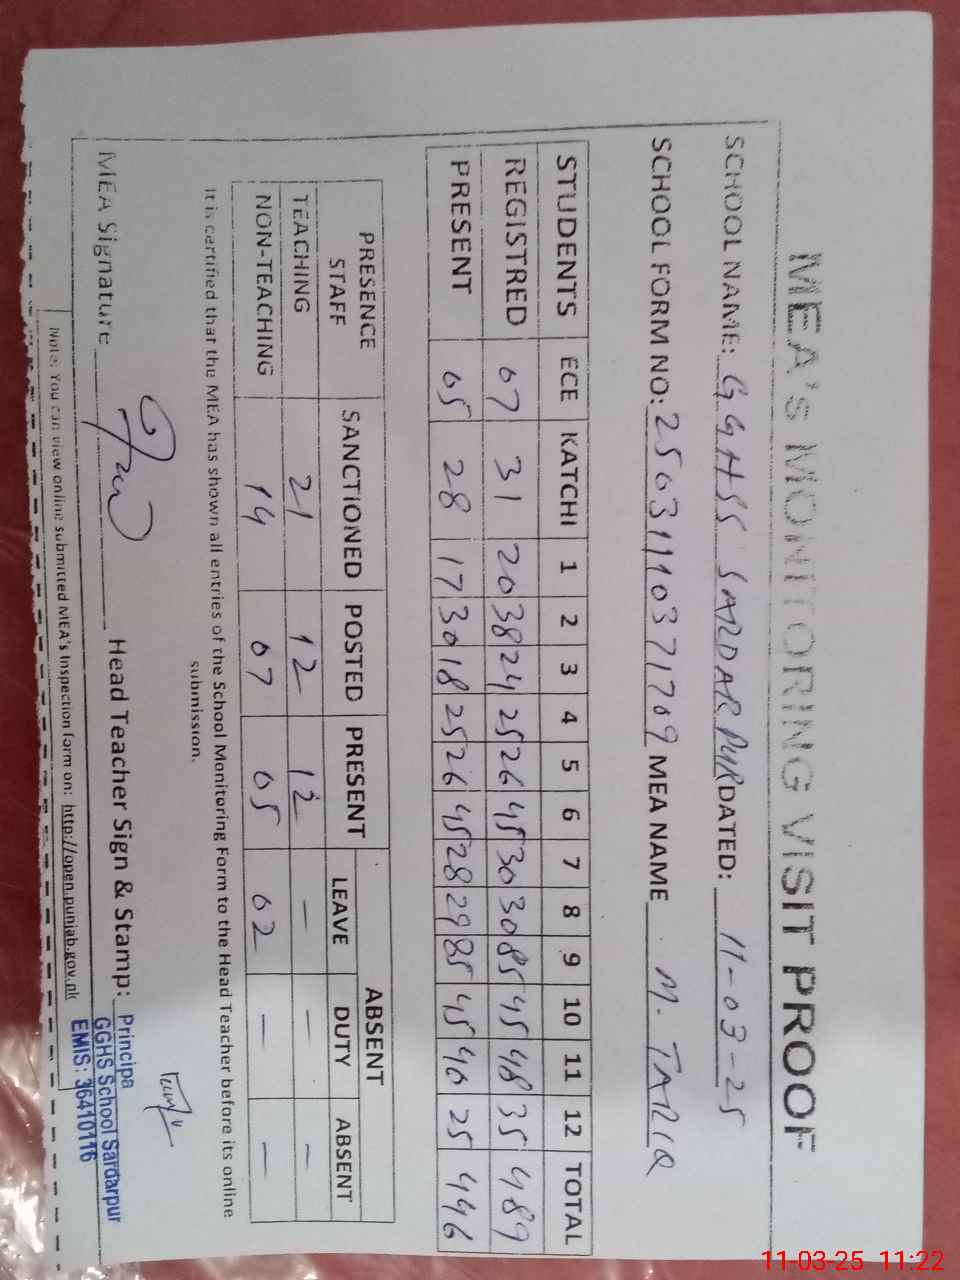 MEA's MONITORING VISIT PROOF
SCHOOL NAME: GGHSS SARDAR PUR DATED: 11-03-25
SCHOOL FORM NO: MEA NAME M. TARIQ
STUDENTS ECE KATCHI 1 2 3 4 5 6 7 8 9 10 11 12 TOTAL
REGISTRED 07 31 20 38 24 25 26 45 30 30 85 45 48 35 489
PRESENT 05 28 17 30 18 25 26 45 28 29 85 45 40 25 446
PRESENCE STAFF SANCTIONED POSTED PRESENT ABSENT
LEAVE DUTY ABSENT
TEACHING 21 12 12 — — —
NON-TEACHING 14 07 05 02 — —
It is certified that the MEA has shown all entries of the School Monitoring Form to the Head Teacher before its online
submission.
MEA Signature Head Teacher Sign & Stamp: Principa
GGHS School Sardarpur
EMIS: 36410116
Note: You can view online submitted MEA's Inspection form on: http://open.punjab.gov.pk
11-03-25 11:22